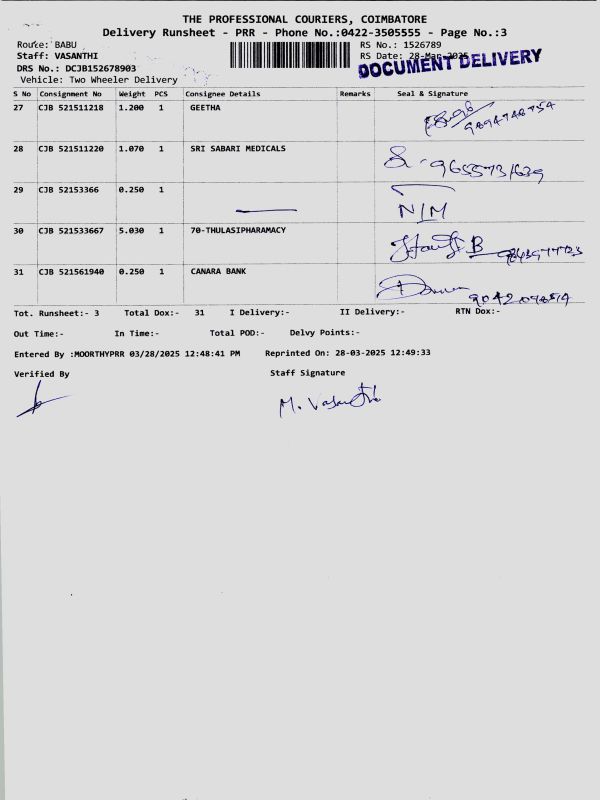 THE PROFESSIONAL COURIERS, COIMBATORE
Delivery Runsheet - PRR - Phone No.:0422-3505555 - Page No.:3
Route: BABU RS No.: 1526789
Staff: VASANTHI RS Date: 28-Mar-2025
DOCUMENT DELIVERY
DRS No.: DCJB152678903
Vehicle: Two Wheeler Delivery
S No Consignment No Weight PCS Consignee Details Remarks Seal & Signature
27 CJB 521511218 1.200 1 GEETHA
28 CJB 521511220 1.070 1 SRI SABARI MEDICALS
29 CJB 52153366 0.250 1 N/M
30 CJB 521533667 5.030 1 70-THULASIPHARAMACY
31 CJB 521561940 0.250 1 CANARA BANK
Tot. Runsheet:- 3 Total Dox:- 31 I Delivery:- II Delivery:- RTN Dox:-
Out Time:- In Time:- Total POD:- Delvy Points:-
Entered By :MOORTHYPRR 03/28/2025 12:48:41 PM Reprinted On: 28-03-2025 12:49:33
Verified By Staff Signature
M. Vasanthi